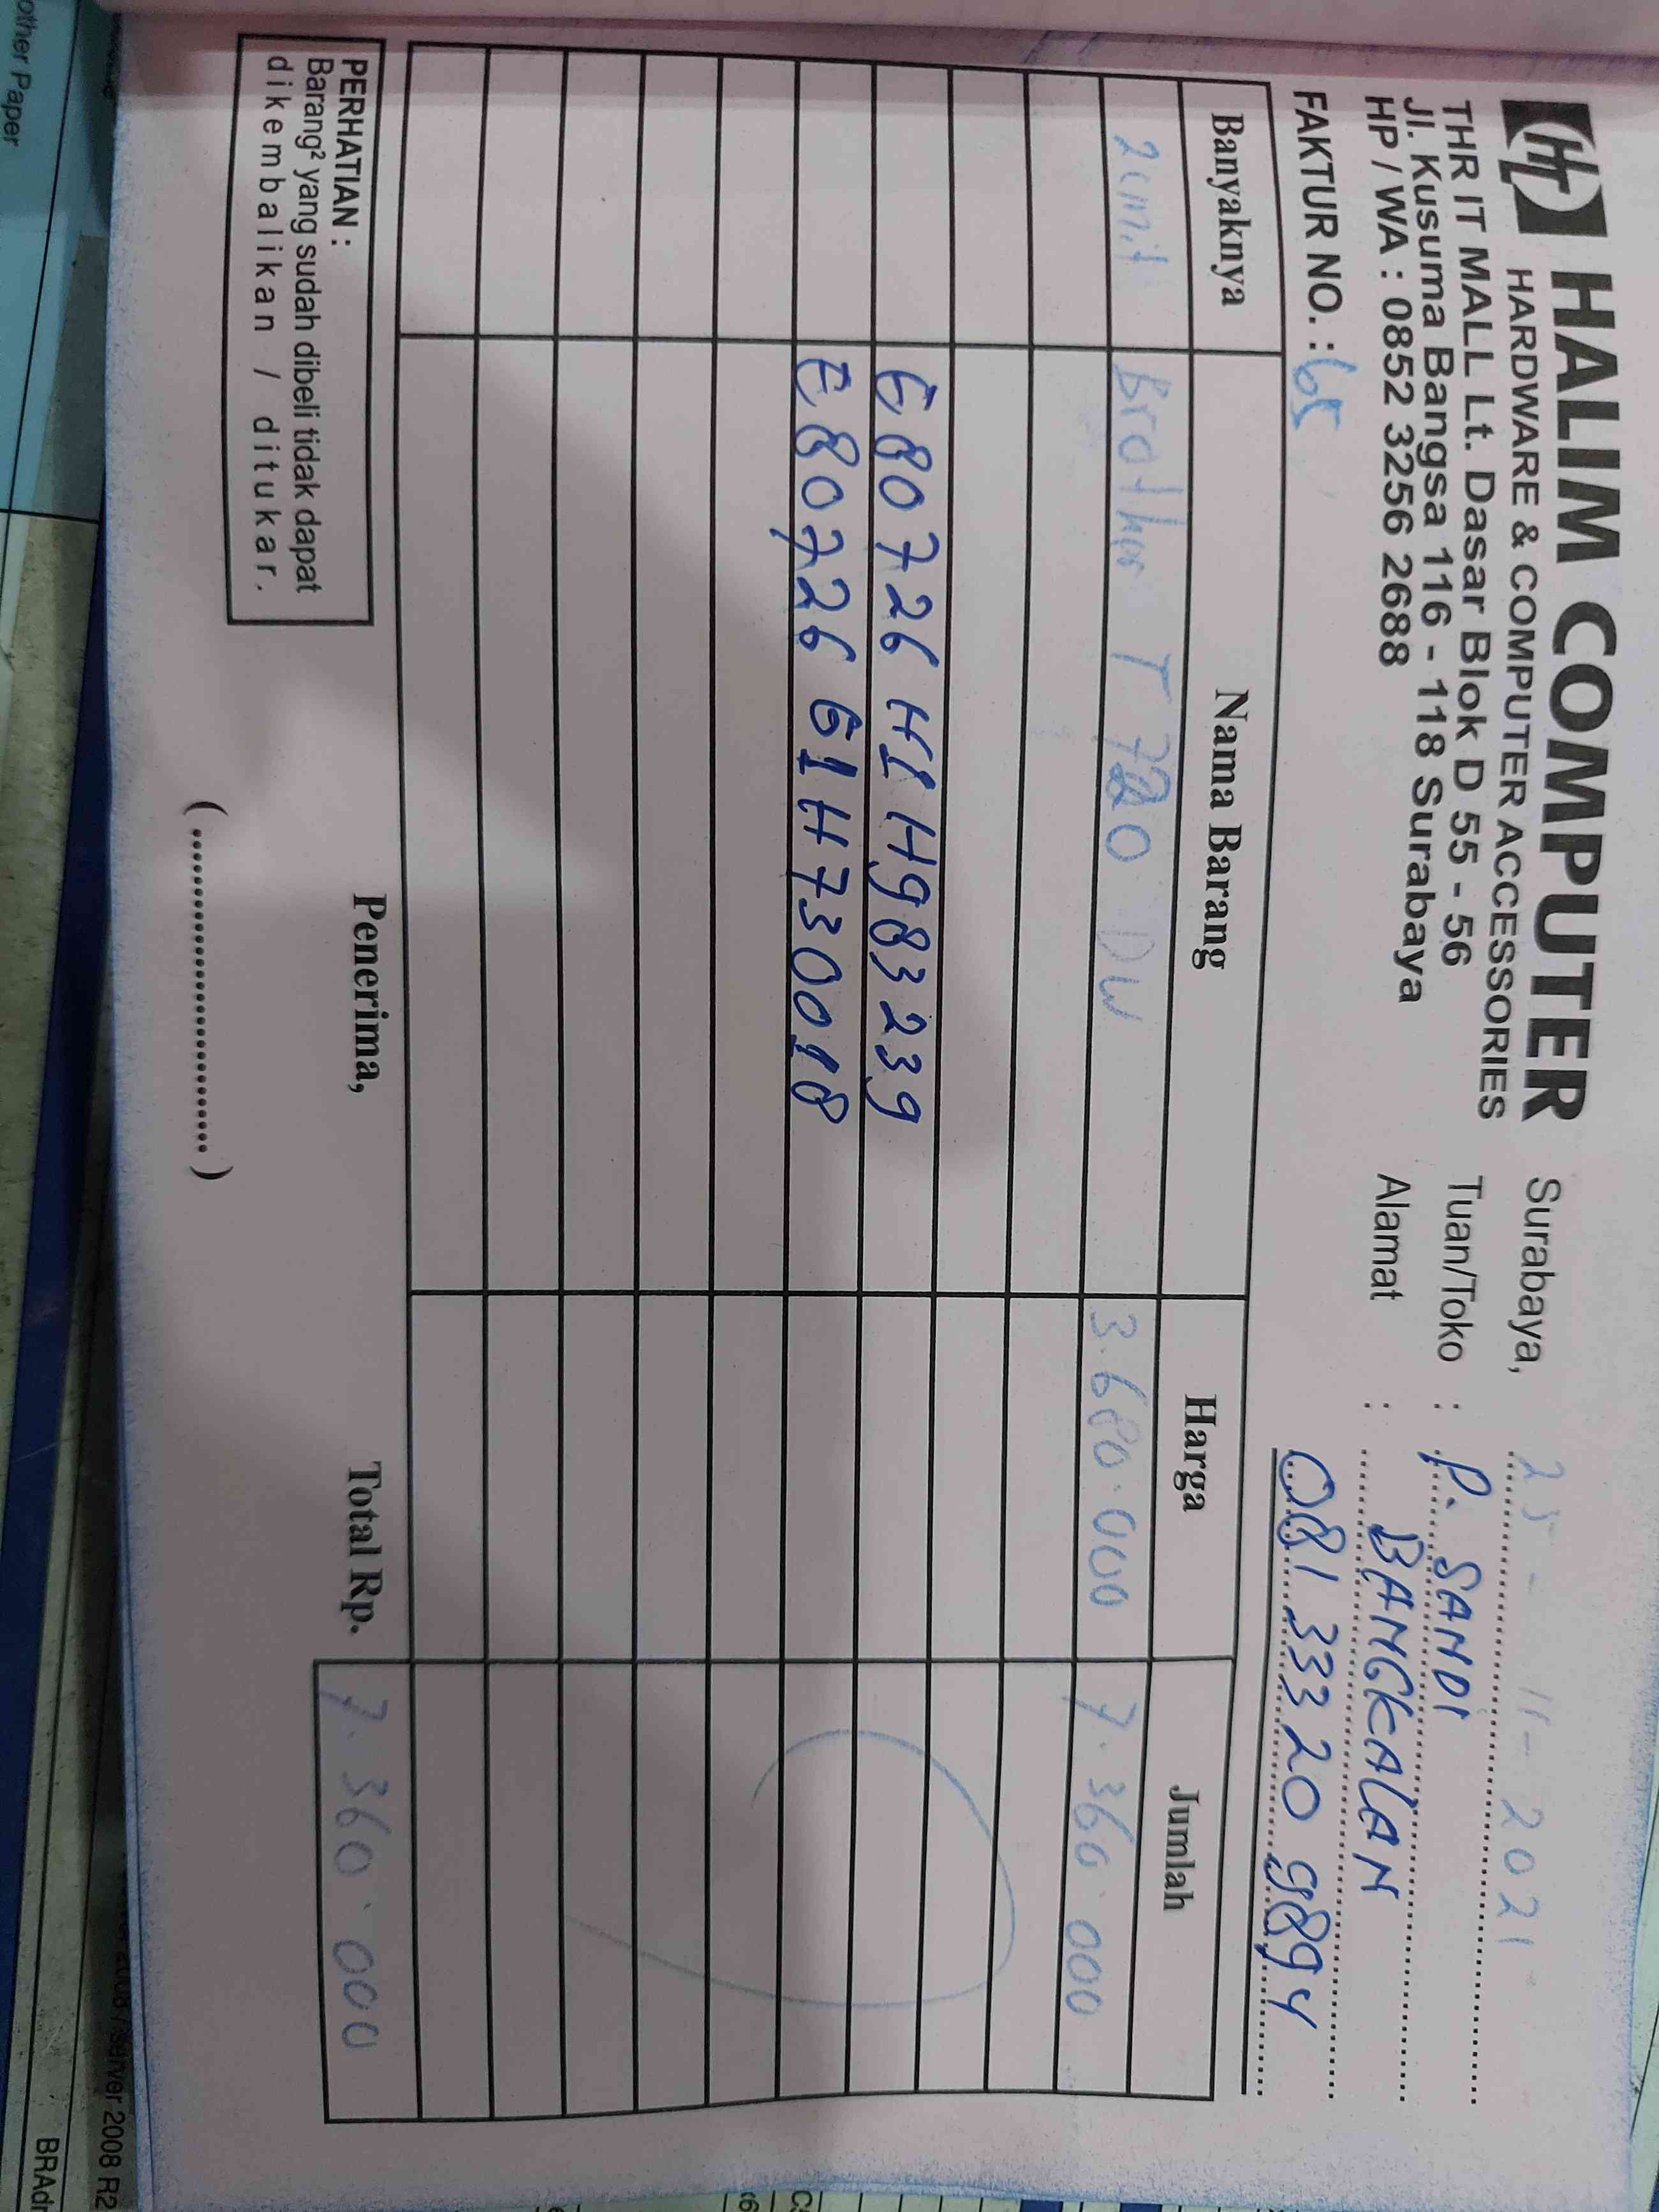 HT HALIM COMPUTER
HARDWARE & COMPUTER ACCESSORIES
THR IT MALL Lt. Dasar Blok D 55 - 56
Jl. Kusuma Bangsa 116 - 118 Surabaya
HP / WA : 0852 3256 2688
Surabaya, 25 - 11 - 2021
Tuan/Toko : P. SANDI
Alamat : BANGKALAN
081 333 20 9894
FAKTUR NO. : 65
Banyaknya Nama Barang Harga Jumlah
2 unit Brother T 720 DW 3.680.000 7.360.000
E80726 H1H983239
E80726 G1H730018
PERHATIAN :
Barang² yang sudah dibeli tidak dapat
dikembalikan / ditukar.
Penerima,
Total Rp. 7.360.000
(..............................)
other Paper
server 2008 R2